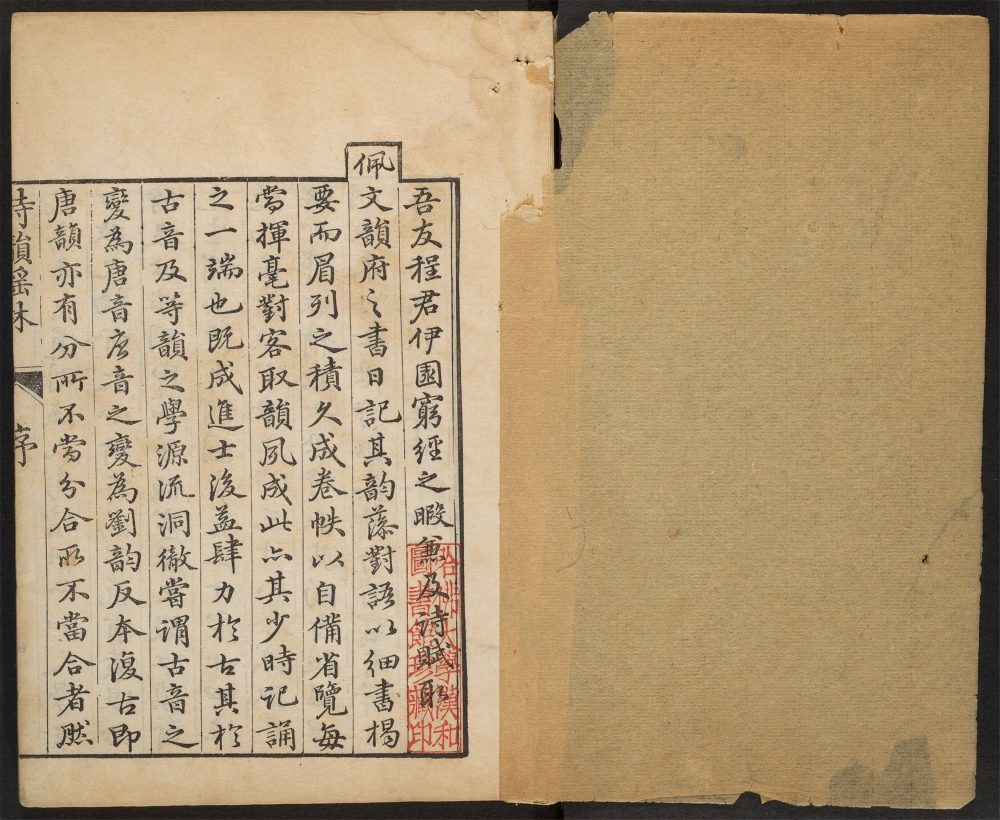 吾友程君伊園窮經之暇兼及詩賦取
佩文韻府之書日記其韵藻對語以細書揭
要而眉列之積久成卷帙以自備省覽每
當揮毫對客取韻夙成此亦其少時記誦
之一端也既成進士後益肆力於古其於
古音及等韻之學源流洞徹嘗謂古音之
變為唐音唐音之變為劉韵反本復古即
唐韻亦有分所不當分合所不當合者然
詩韻瑤林
序
哈佛大學漢和
圖書館珍藏印